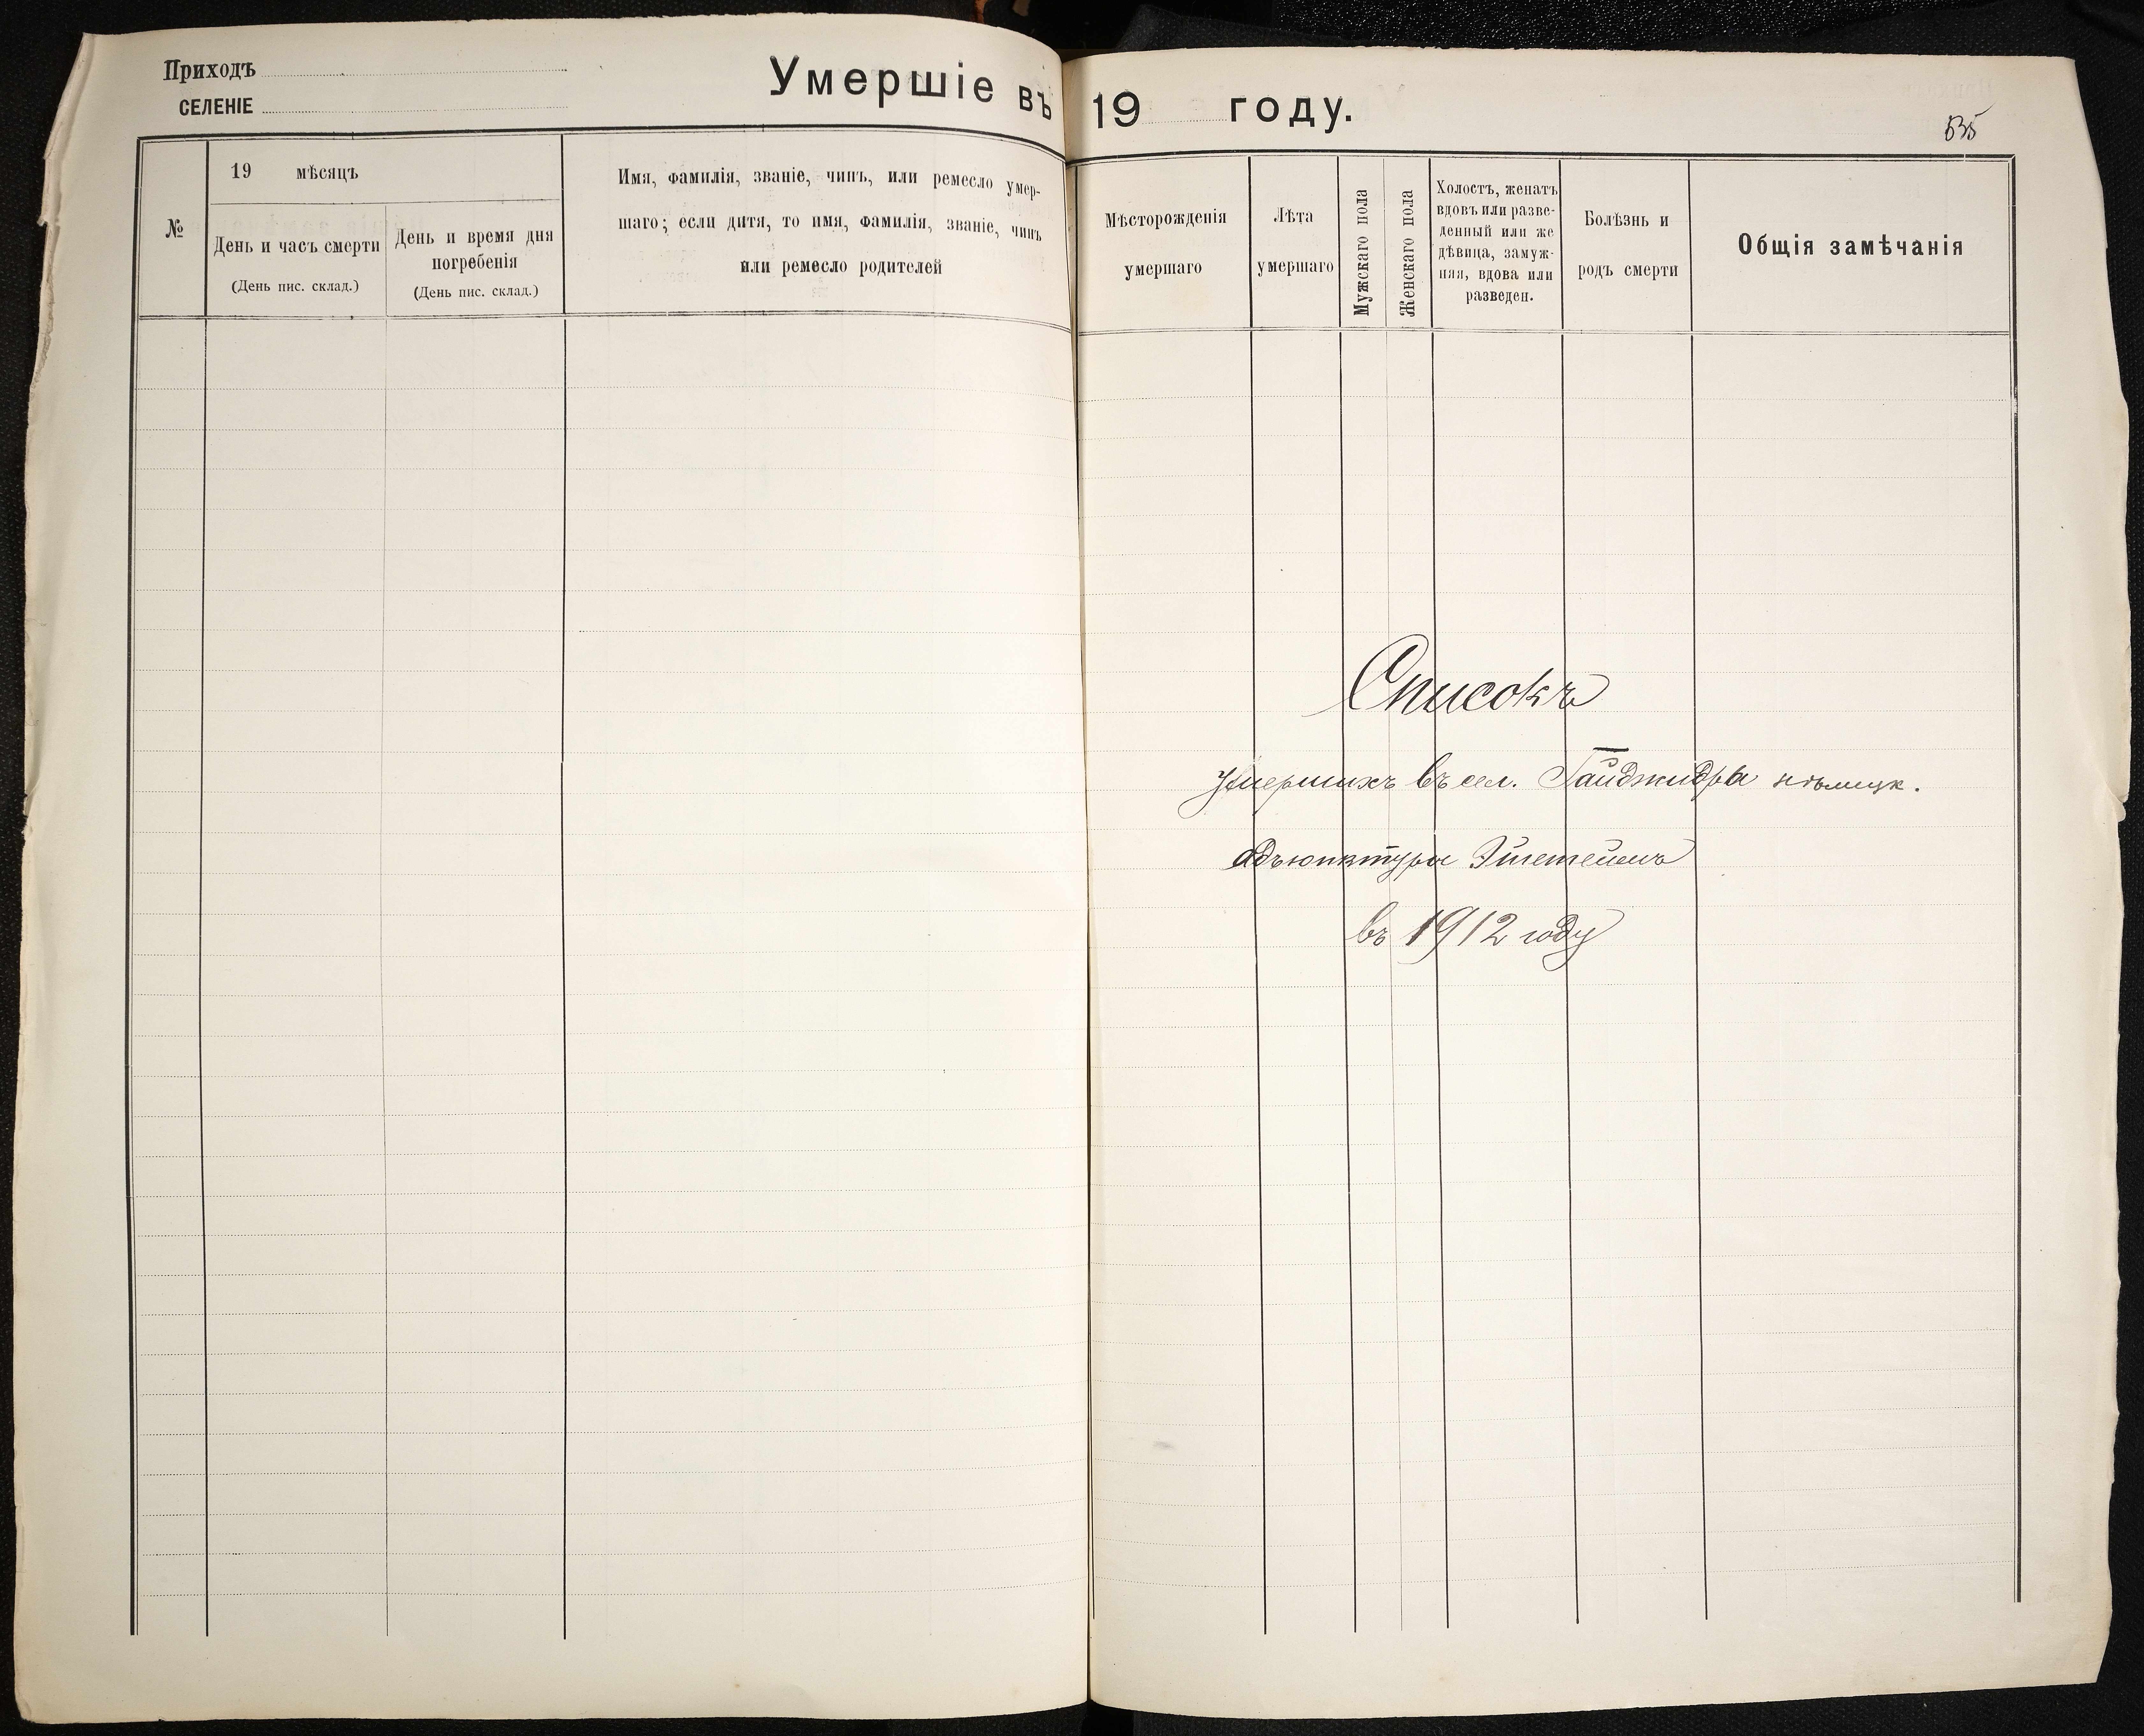 Приходъ
СЕЛЕНІЕ
Умершіе въ 19 году.
535
№
19 мѣсяцъ
День и часъ смерти
(День пис. склад.)
День и время дня
погребенія
(День пис. склад.)
Имя, фамилія, званіе, чинъ, или ремесло умер-
шаго; если дитя, то имя, фамилія, званіе, чинъ
или ремесло родителей
Мѣсторожденія
умершаго
Лѣта
умершаго
Мужскаго пола
Женскаго пола
Холостъ, женатъ
вдовъ или разве-
денный или же
дѣвица, замуж-
няя, вдова или
разведен.
Болѣзнь и
родъ смерти
Общія замѣчанія
Списокъ
умершихъ въ сел. Гайджидры нѣмецк.
адъюнктуры Эйгенгеймъ
въ 1912 году